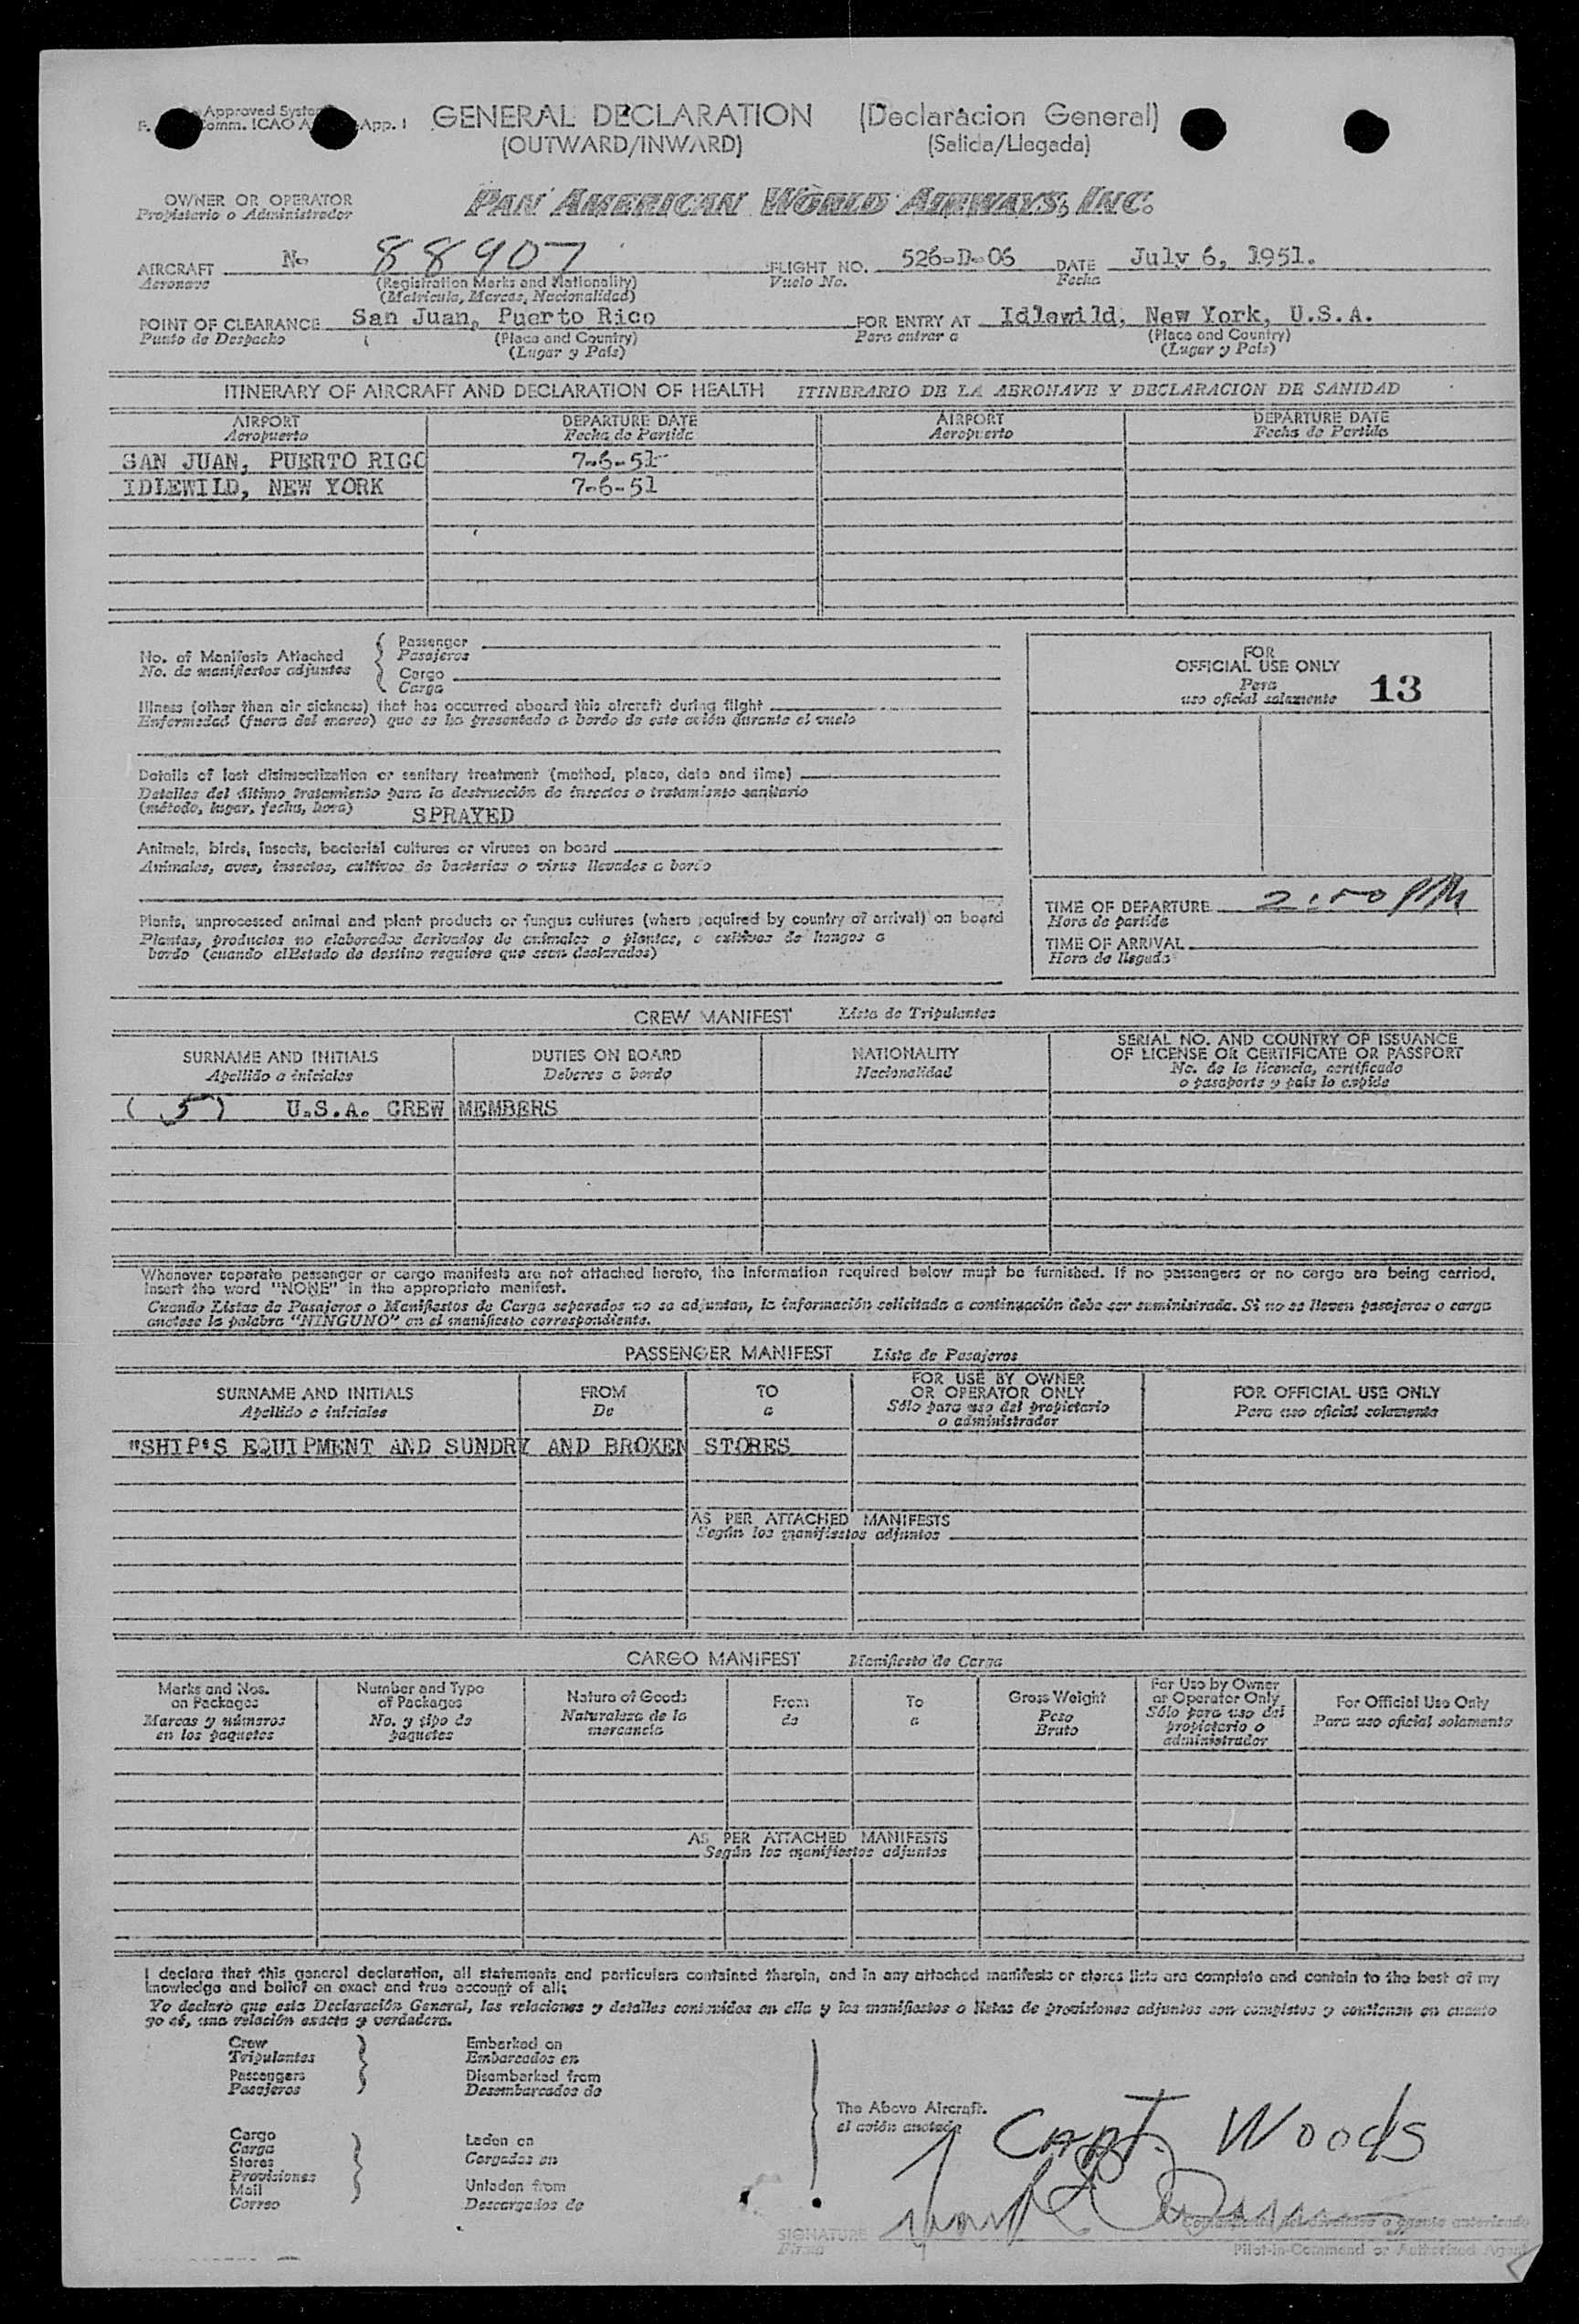 Approved System
Comm. ICAO App. I
GENERAL DECLARATION (Declaracion General)
(OUTWARD/INWARD) (Salida/Llegada)
OWNER OR OPERATOR
Propietario o Administrador
PAN AMERICAN WORLD AIRWAYS, INC.
AIRCRAFT N- 88907 FLIGHT NO. 526-D-06 DATE July 6, 1951.
Aeronave (Registration Marks and Nationality) Vuelo No. Fecha
(Matricula, Marcas, Nacionalidad)
POINT OF CLEARANCE San Juan, Puerto Rico FOR ENTRY AT Idlewild, New York, U.S.A.
Punto de Despacho (Place and Country) Para entrar a (Place and Country)
(Lugar y País) (Lugar y País)
ITINERARY OF AIRCRAFT AND DECLARATION OF HEALTH ITINERARIO DE LA AERONAVE Y DECLARACION DE SANIDAD
AIRPORT DEPARTURE DATE AIRPORT DEPARTURE DATE
Aeropuerto Fecha de Partida Aeropuerto Fecha de Partida
SAN JUAN, PUERTO RICO 7-6-51
IDLEWILD, NEW YORK 7-6-51
No. of Manifests Attached
No. de manifiestos adjuntos
Passenger
Pasajeros
Cargo
Carga
FOR
OFFICIAL USE ONLY
Para
uso oficial solamente 13
Illness (other than air sickness) that has occurred aboard this aircraft during flight
Enfermedad (fuera del mareo) que se ha presentado a bordo de este avión durante el vuelo
Details of last disinsectization or sanitary treatment (method, place, date and time)
Detalles del último tratamiento para la destrucción de insectos o tratamiento sanitario
(método, lugar, fecha, hora) SPRAYED
Animals, birds, insects, bacterial cultures or viruses on board
Animales, aves, insectos, cultivos de bacterias o virus llevados a bordo
Plants, unprocessed animal and plant products or fungus cultures (where required by country of arrival) on board
Plantas, productos no elaborados derivados de animales o plantas, o cultivos de hongos a
bordo (cuando elEstado de destino requiere que sean declarados)
TIME OF DEPARTURE 2:50 PM
Hora de partida
TIME OF ARRIVAL
Hora de llegada
CREW MANIFEST Lista de Tripulantes
SURNAME AND INITIALS DUTIES ON BOARD NATIONALITY SERIAL NO. AND COUNTRY OF ISSUANCE
Apellido a iniciales Deberes a bordo Nacionalidad OF LICENSE OR CERTIFICATE OR PASSPORT
No. de la licencia, certificado
o pasaporte y país lo expide
( 5 ) U.S.A. CREW MEMBERS
Whenever separate passenger or cargo manifests are not attached hereto, the information required below must be furnished. If no passengers or no cargo are being carried,
insert the word "NONE" in the appropriate manifest.
Cuando Listas de Pasajeros o Manifiestos de Carga separados no se adjuntan, la información solicitada a continuación debe ser suministrada. Si no se lleven pasajeros o carga
anotese la palabra "NINGUNO" en el manifiesto correspondiente.
PASSENGER MANIFEST Lista de Pasajeros
SURNAME AND INITIALS FROM TO FOR USE BY OWNER FOR OFFICIAL USE ONLY
Apellido e iniciales De a OR OPERATOR ONLY Para uso oficial solamente
Sólo para uso del propietario
o administrador
"SHIP'S EQUIPMENT AND SUNDRY AND BROKEN STORES
AS PER ATTACHED MANIFESTS
Según los manifiestos adjuntos
CARGO MANIFEST Manifiesto de Carga
Marks and Nos. Number and Type Nature of Goods From To Gross Weight For Use by Owner For Official Use Only
on Packages of Packages Naturaleza de la de a Peso or Operator Only Para uso oficial solamente
Marcas y números No. y tipo de mercancía Bruto Sólo para uso del
en los paquetes paquetes propietario o
administrador
AS PER ATTACHED MANIFESTS
Según los manifiestos adjuntos
I declare that this general declaration, all statements and particulars contained therein, and in any attached manifests or stores lists are complete and contain to the best of my
knowledge and belief an exact and true account of all:
Yo declaro que esta Declaración General, las relaciones y detalles contenidos en ella y los manifiestos o listas de provisiones adjuntos son completos y contienen en cuanto
yo sé, una relación exacta y verdadera.
Crew Embarked on
Tripulantes Embarcados en
Passengers Disembarked from
Pasajeros Desembarcados de
The Above Aircraft.
el avión anotado
Capt. Woods
Cargo
Carga Laden on
Stores Cargados en
Provisiones
Mail Unladen from
Correo Descargados de
SIGNATURE
Firma
Pilot-in-Command or Authorized Agent